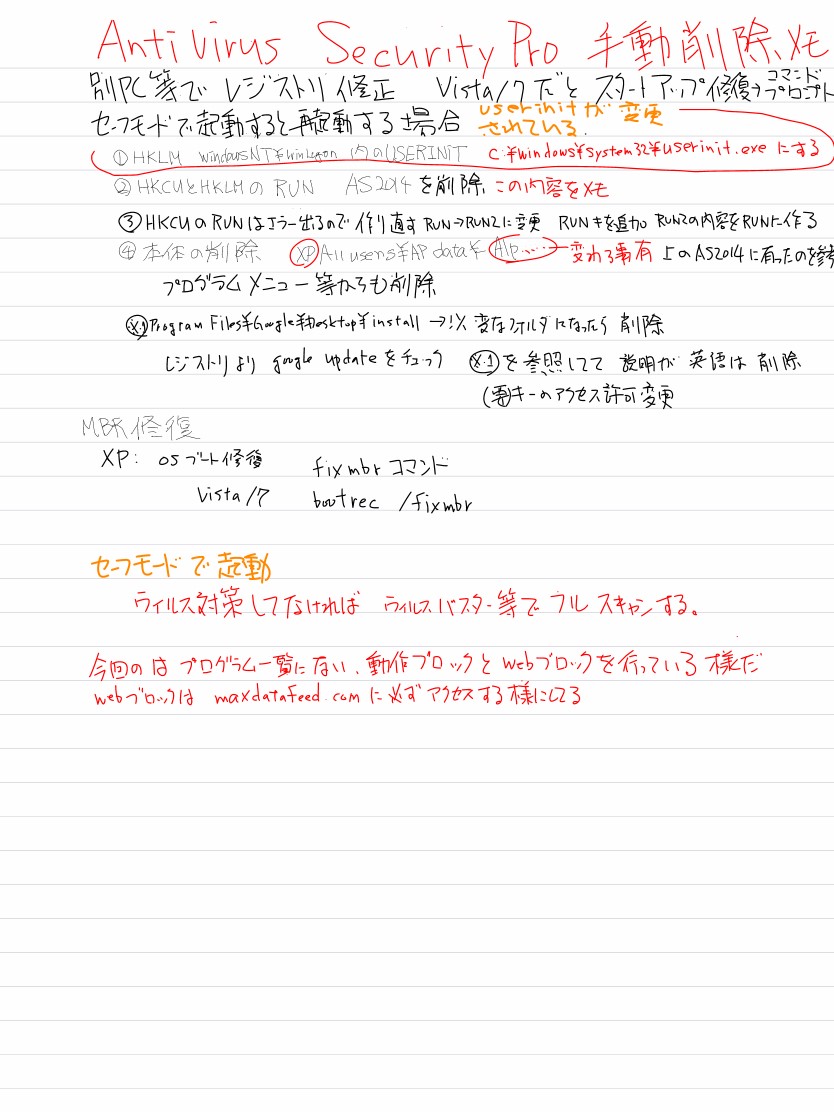 AntiVirus Security Pro 手動削除メモ
別PC等で レジストリ修正 Vista/7だと スタートアップ修復→コマンドプロンプト
セーフモードで起動すると再起動する場合 userinitが変更されている.
①HKLM windowsNT¥winlogon 内のUSERINIT C:¥windows¥system32¥userinit.exe にする
②HKCUとHKLMの RUN AS2014 を削除、この内容をメモ
③HKCUのRUNはエラー出るので作り直す RUN→RUN2に変更 RUNキを追加 RUN2の内容をRUNに作る
④本体の削除 XP All users¥AP data¥ Alp..... 変わる事有 上のAS2014に有ったのを参
プログラムメニュー等からも削除
※1 Program Files¥Google¥Desktop¥install →!% 変なフォルダになったら 削除
レジストリより google updateをチェック ※1を参照してて 説明が 英語は 削除
(要)キーのアクセス許可変更
MBR修復
XP: OSブート修復 fixmbr コマンド
Vista/7 bootrec /fixmbr
セーフモードで起動
ウィルス対策してなければ ウィルスバスター等でフルスキャンする。
今回のは プログラム一覧にない、動作ブロックと Webブロックを行っている様だ
webブロックは maxdatafeed.com に必ずアクセスする様にしてる